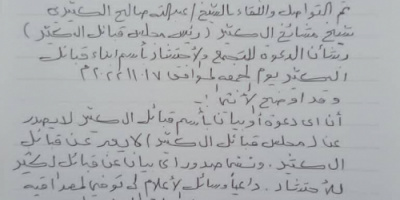 تم التواصل واللقاء بالشيخ / عبدالله صالح الكثيري
شيخ مشائخ ال كثير (رئيس مجلس قبائل ال كثير)
بشأن الدعوة للتجمع والاحتشاد بأسم ابناء قبائل
ال كثير يوم الجمعه الموافق ٢٠٢٢.١١.١٧م
وقد اوضح لأنه
أن اي دعوة أو بيان بأسم قبائل ال كثير لا يصدر
عن (مجلس قبائل ال كثير) لا يعبر عن قبائل
ال كثير. ونفى صدور اي بيان عن قبائل ال كثير
للأحتشاد. داعياً وسائل الأعلام الى توخي المصداقية